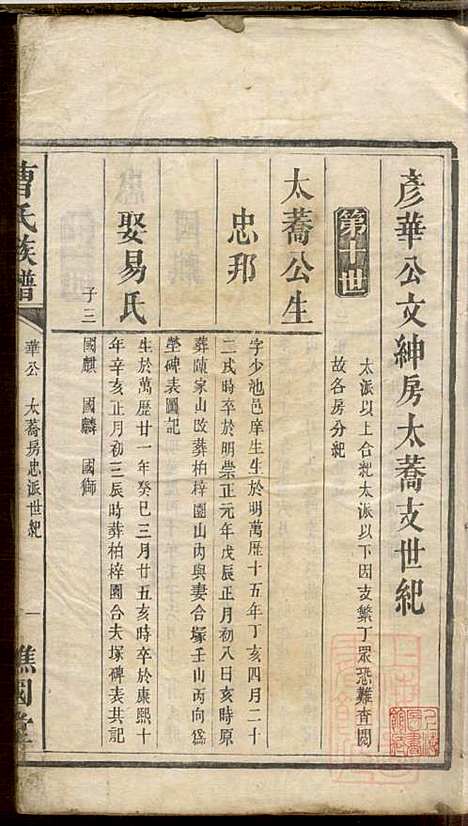 彥華公文紳房太蕎支世紀
第十世
太派以上合紀太派以下因支繁丁眾恐難查閱
故各房分紀
太蕎公生
忠邦
字少池邑庠生生於明萬歷十五年丁亥四月二十
二戌時卒於明崇正元年戊辰正月初八日亥時原
葬陳家山改葬柏梓園山內與妻合塚壬山丙向爲
塋碑表圖記
娶易氏
生於萬歷廿一年癸巳三月廿五亥時卒於康熙十
年辛亥正月初三辰時葬柏梓園合夫塚碑表其記
子三
國麒 國麟 國獅
曹氏族譜
華公 太蕎房忠派世紀
一
譙國堂